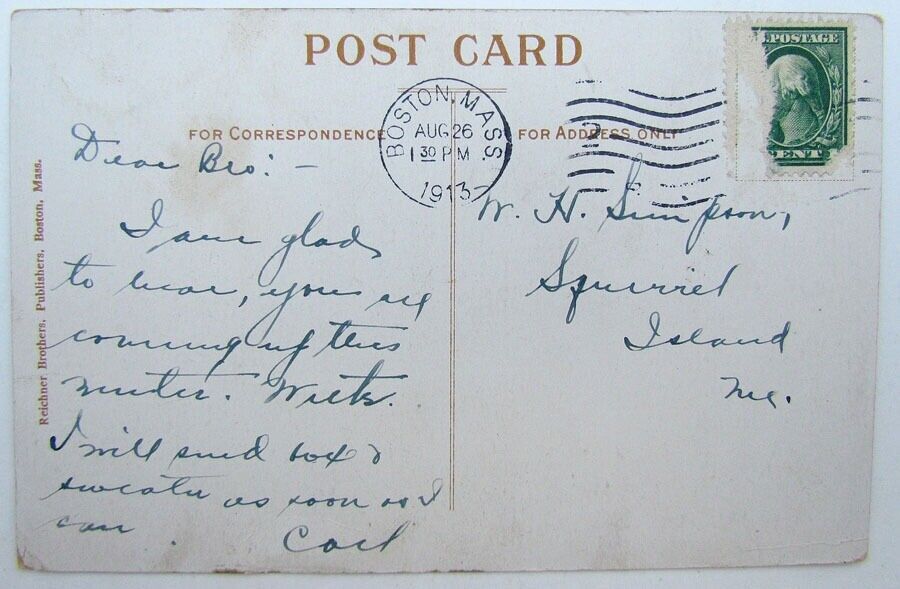 POST CARD
BOSTON, MASS.
AUG 26
1 30 PM
1913
.POSTAGE
CENT
FOR CORRESPONDENCE
FOR ADDRESS ONLY
Reichner Brothers, Publishers, Boston, Mass.
Dear Bro: -
I am glad
to hear, you are
coming up this
winter. Write.
I will send box &
sweater as soon as I
can.
Carl
W. H. Simpson,
Squirrel
Island
Me.